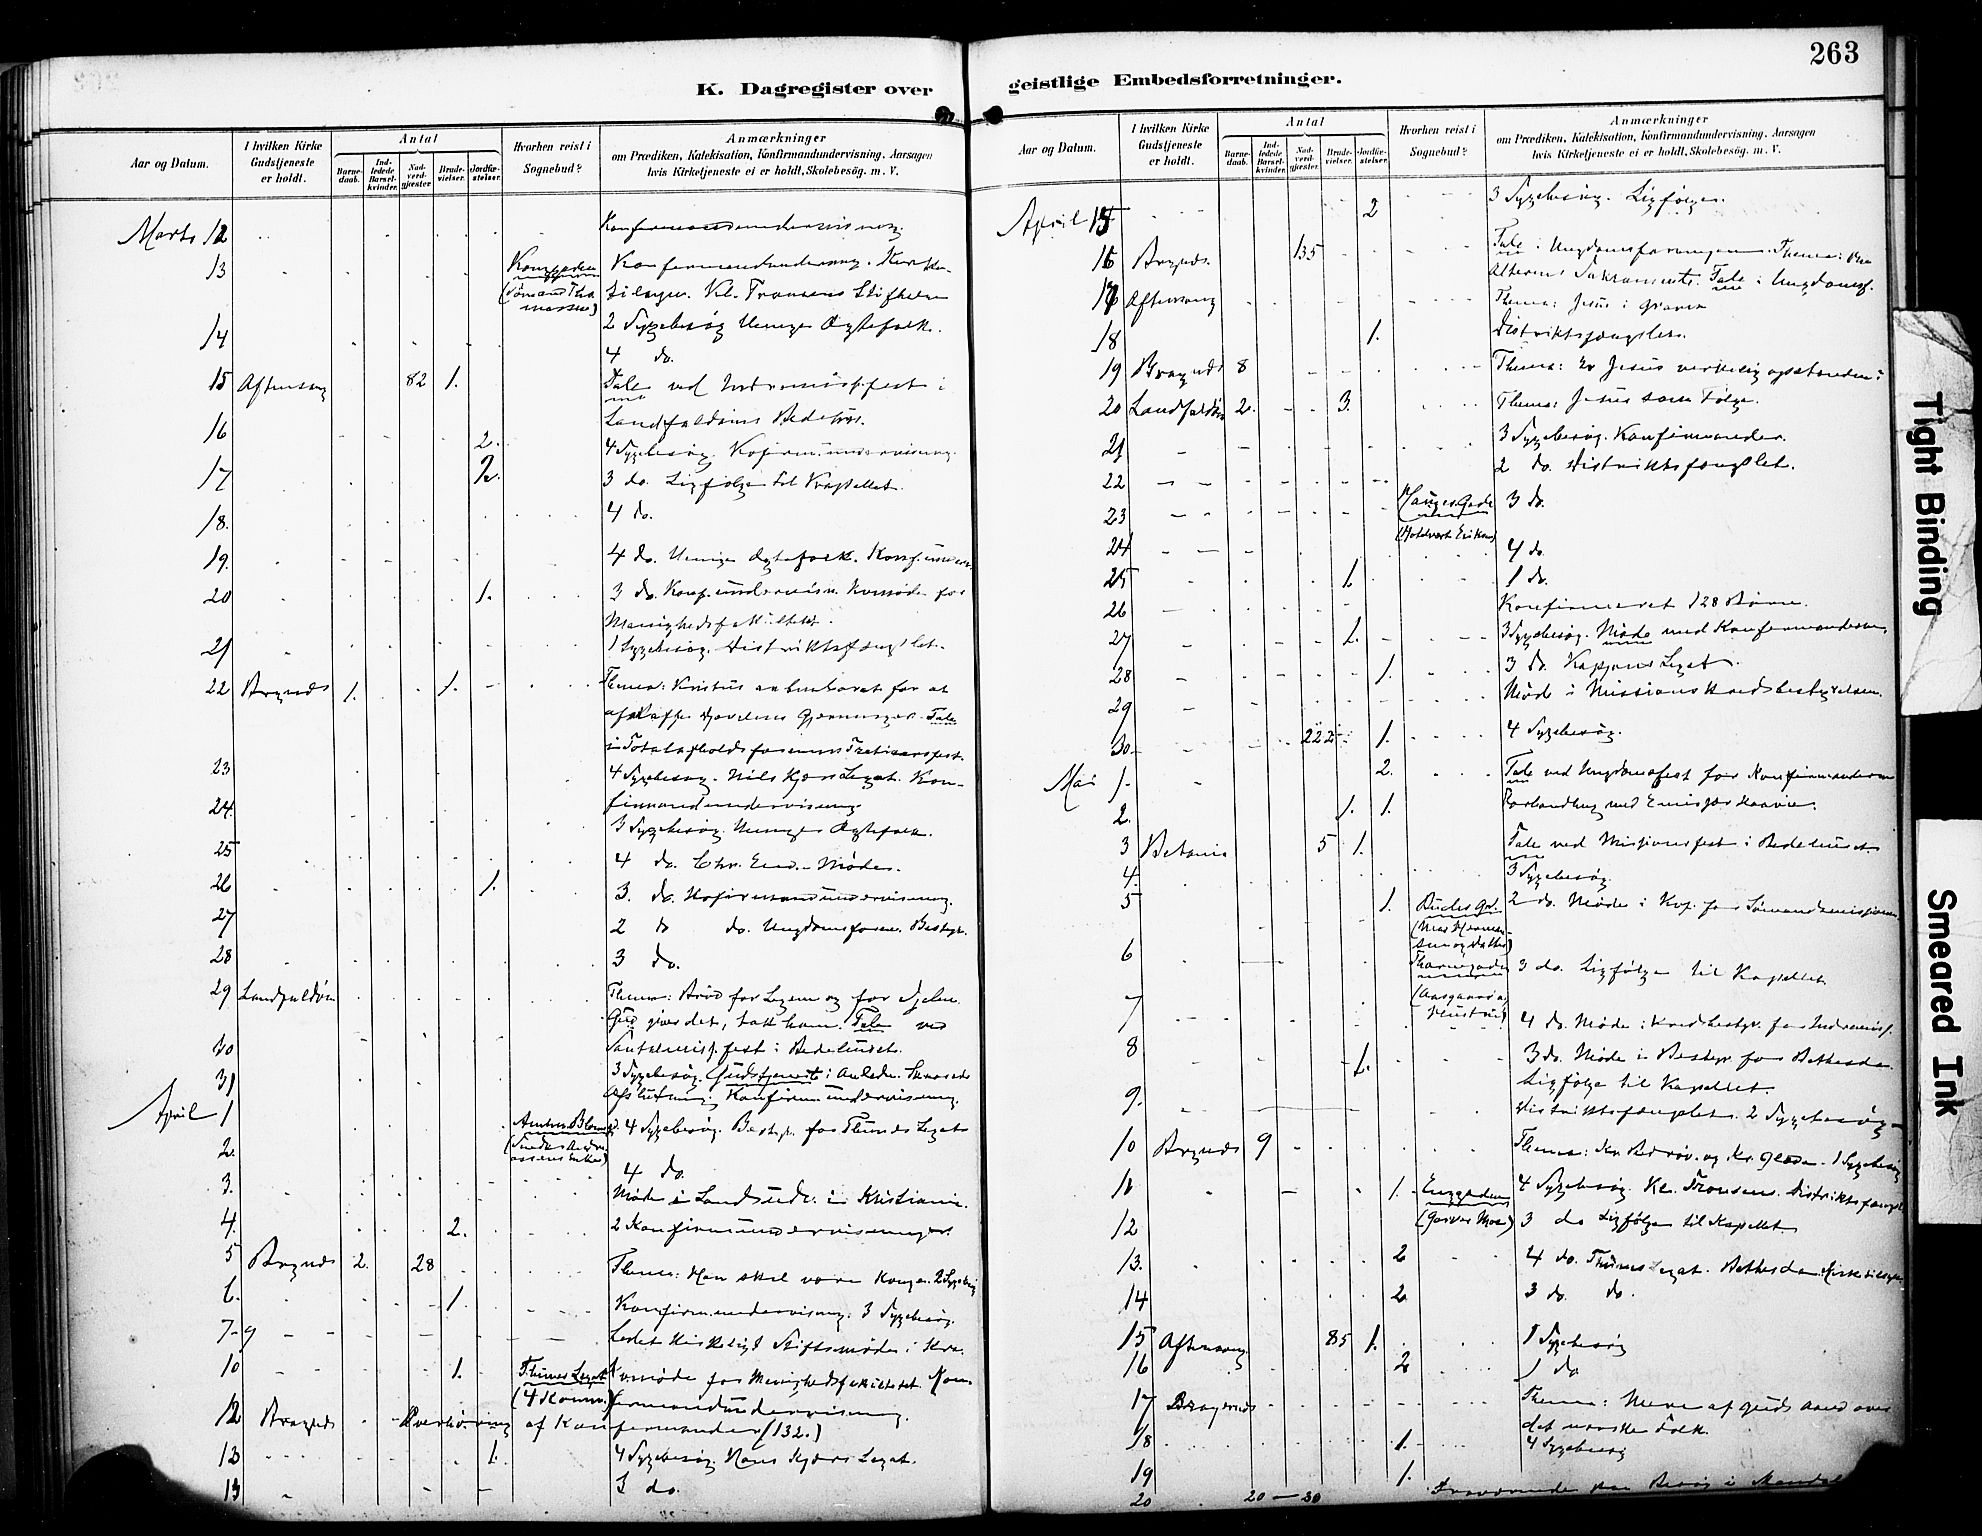 263
K. Dagregister over geistlige Embedsforretninger.
Aar og Datum.
I hvilken Kirke Gudstjeneste er holdt.
Antal
Barnedaab.
Indledede Barselkvinder.
Nadverdgjester
Brudevielser.
Jordfæstelser.
Hvorhen reist i Sognebud?
Anmærkninger
om Prædiken, Katekisation, Konfirmandundervisning, Aarsagen
hvis Kirketjeneste ei er holdt, Skolebesøg. m. V.
Marts 12 Konfirmandundervisning.
13 Konggaden Konfirmandunderv. Kirke-
tilsyn. Kl. Transens Stiftelse
14 2 Sygebesøg Uenige Ægtefolk.
4 do.
15 Aftensang 82 1. Tale ved Indremissf.fest i
Landfaldøens Bedehus.
16 2. 4 Sygebesøg. Kofirm.undervisning.
17 2. 3 do. Ligfølge til Kapellet.
18. 4 do.
19. 4 do. Uenige Ægtefolk. Konf.underv.
20 1. 3 do. Konf.undervisn. Komøde for
Menighedsfakultetet.
21 1 Sygebesøg. Distriktsfængslet.
22 Bragnæs 1. 1. Thema: Kristus aabenbaret for at
afskaffe Djævelens Gjerninger. Tale
i Totalafholdsforenings
23 4 Sygebesøg. Nils Kjærs Legat. Kon-
firmandundervisning.
24. 3 Sygebesøg. Uenige Ægtefolk.
25 4 do. Chr. End. Møde.
26 1. 3. do. Kofirmandundervisning.
27 2 do do. Ungdomsforen. Bestyr.
28 3 do.
29 Landfaldøen Thema: Brød for Legeme og for Sjelen.
Gud giver det, tak ham. Tale ved
30 Santalmis.fest i Bedehuset.
31 3 Sygebesøg. Gudstjeneste i Anledn.
Afslutning. Konfirm.undervisning.
April 1 4 Sygebesøg. Bestyr. for Thunes Legat
2. 4 do.
3. Møde i Landsudv. i Kristiania.
4. 2. 2 Konfirmundervisninger.
5 Bragnæs 2. 28 Thema: Han skal være Konge. 2 Sygebesøg
6. 1. Konfirm.undervisning. 3 Sygebesøg.
7-9 Ledet Kirkeligt Stiftsmøde i Kra.
10 1. Thunes Legat Komøde for Menighedsfakultetet. Kon-
(4 Komm.) firmandundervisning.
12 Bragnæs Overhøring af Konfirmander (132.)
13 1. 4 Sygebesøg. Hans Kjærs Legat.
13 3 do.
Aar og Datum.
I hvilken Kirke Gudstjeneste er holdt.
Antal
Barnedaab.
Indledede Barselkvinder.
Nadverdgjester
Brudevielser.
Jordfæstelser.
Hvorhen reist i Sognebud?
Anmærkninger
om Prædiken, Katekisation, Konfirmandundervisning, Aarsagen
hvis Kirketjeneste ei er holdt, Skolebesøg. m. V.
April 15 2 3 Sygebesøg. Ligfølge.
16 Bragnæs. 135 Tale i Ungdomsforeningen. Thema: Om
Alterens Sakramente. Tale i Ungdomsf.
17 Aftensang Thema: Jesus i Graven
18 1. Distriktsfængslet.
19 Bragnæs 8 Thema: Er Jesus virkelig opstanden?
20 Landfaldøen 2. 3. Thema: Jesus som Følge.
21 3 Sygebesøg. Konfirmander.
22 2 do. Distriktsfængslet.
23 Hauges Gade 3 do.
24 4 do.
25 1. 1 do.
26 Konfirmeret 128 Børn.
27 1. 3 Sygebesøg. Møde med Konfirmanderne.
28 1. 3 do. Kappens Legat.
29 Møde i Missionskredsbestyrelsen.
30 222 1. 4 Sygebesøg.
Mai 1. 2. Tale ved Ungdomsfest for Konfirmanderne
2. 1. 1. Forhandling med
3 Betania 5 1. Tale ved Missionsfest i Bedehuset.
4. 3 Sygebesøg.
5 1. 2 do. Møde i Kap. for Sømandsmissionen
6 3 do. Ligfølge til Kapellet.
7 4 do. Møde i Kredsbestyr. for Indremis.
8 1. 3 do. Møde i Bestyr. for Bethesda.
Ligfølge til Kapellet.
9. Distriktsfængslet. 2 Sygebesøg.
10 Bragnæs 9 Thema: Kr. Bedrøv. og Kr. Glæde. 1 Sygebesøg
11 1. Enggaden 4 Sygebesøg. Kl. Transens. Distriktsfængsl.
12 (Garver Moe) 3 do Ligfølge til Kapellet.
13. 2 4 do. Thunes Legat. Bethesda. Kirketilsyn
14 2 3 do. do.
15 Aftensang 85 1. 1 Sygebesøg
16 2 1 do.
17 Bragernes Thema: Mere af Guds Aand over
det norske Folk.
18 1. 4 Sygebesøg
19 1.
20 20 - 30 Fraværende paa Besøg i Mandal
Tight Binding
Smeared Ink